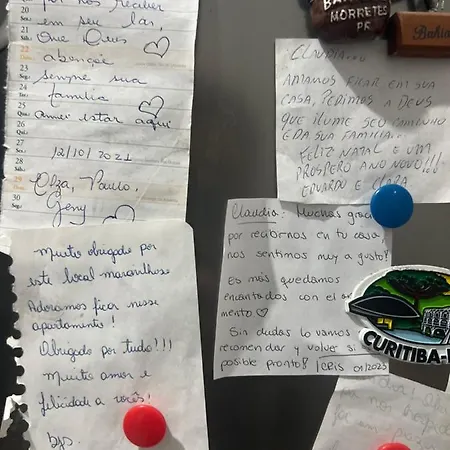 por nos receber
em seu lar,
Que Deus
abençoe
sempre sua
família
amei estar aqui
12/10/2021
Olza, Paulo,
Geny
20
21
22
23
24
25
26
27
28
29
30
MORRETES
PR
Bahia
CLAUDIA...
AMAMOS FICAR EM SUA
CASA, PEDIMOS A DEUS
QUE ILUME SEU CAMINHO
E DA SUA FAMILIA...
FELIZ NATAL E UM
PROSPERO ANO NOVO!!!
EDUARDO E CLARA
Claudia: Muchas
por recibirnos en tu casa,
nos sentimos muy a gusto!
Es más quedamos
encantados con el
mento
Sin dudas lo vamos
recomendar y volver si
posible pronto! CRIS 01/2023
CURITIBA
Muito obrigado por
este local maravilhoso
Adoramos ficar nesse
apartamento!
Obrigado por tudo!!!
Muito amor e
felicidade a vocês!
bjs.